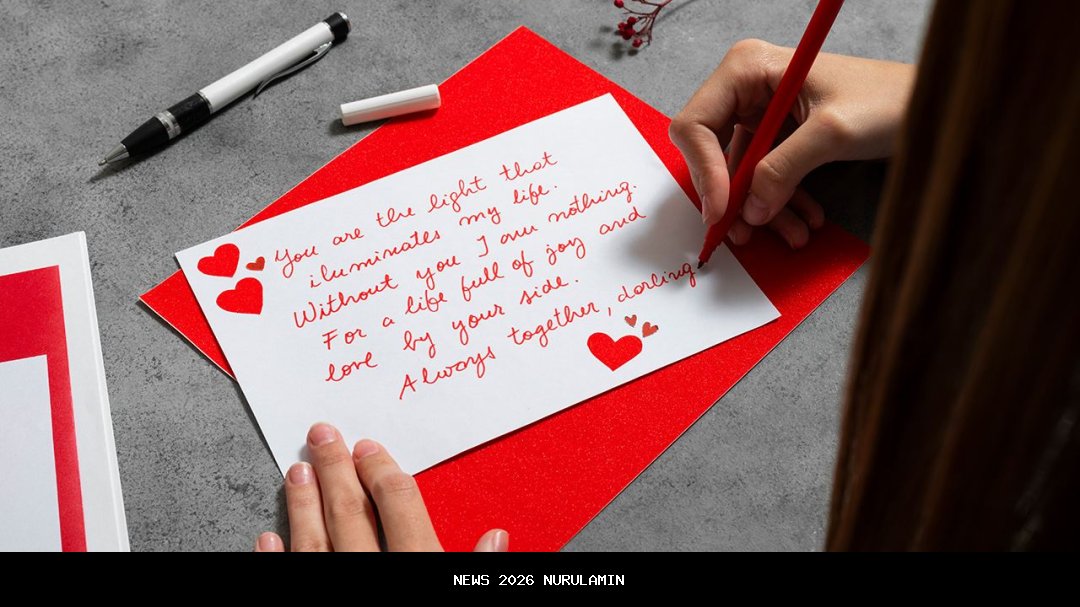 You are the light that
iluminates my life.
Without you I am nothing.
For a life full of joy and
love by your side.
Always together, darling
NEWS 2026 NURULAMIN